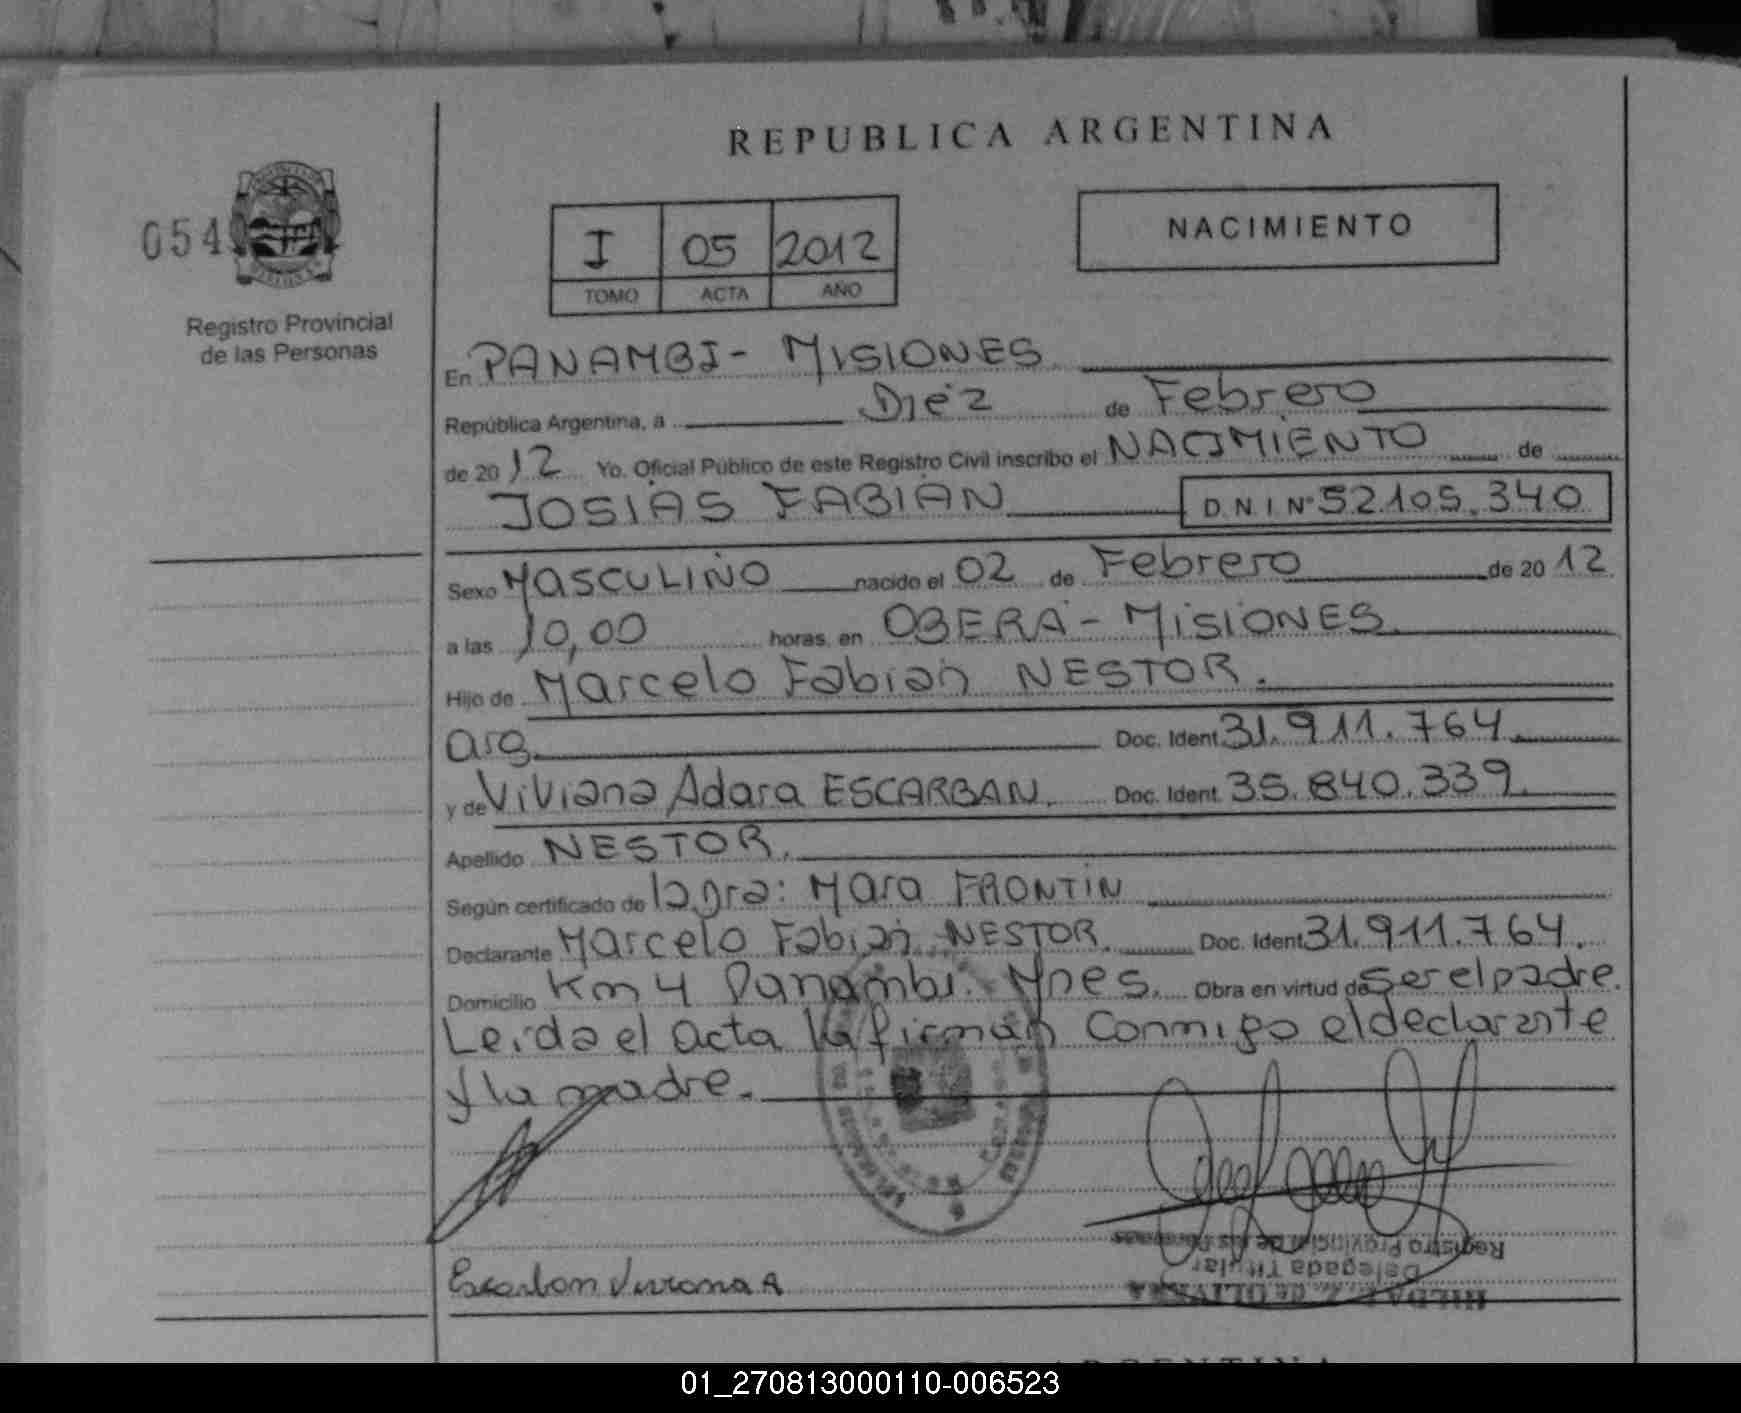 REPUBLICA ARGENTINA
054
I 05 2012
TOMO ACTA AÑO
NACIMIENTO
Registro Provincial
de las Personas
En PANAMBI - MISIONES
República Argentina, a Diéz de Febrero
de 2012 Yo. Oficial Público de este Registro Civil inscribo el NACIMIENTO de
JOSIAS FABIAN D.N.I Nº 52.105.340
Sexo MASCULINO nacido el 02 de Febrero de 2012
a las 10,00 horas, en OBERA - MISIONES.
Hijo de Marcelo Fabian NESTOR.
arg. Doc. Ident. 31.911.764
y de Viviana Adara ESCARBAN. Doc. Ident. 35.840.339.
Apellido NESTOR.
Según certificado de la Dra: Mara FRONTIN
Declarante Marcelo Fabian NESTOR. Doc. Ident. 31.911.764.
Domicilio Km 4 Panambi. Mnes. Obra en virtud de ser el padre.
Leida el acta la firman conmigo el declarante
y la madre.
Registro Provincial de las Personas
Delegada Titular
Escarban Viviana A
01_270813000110-006523